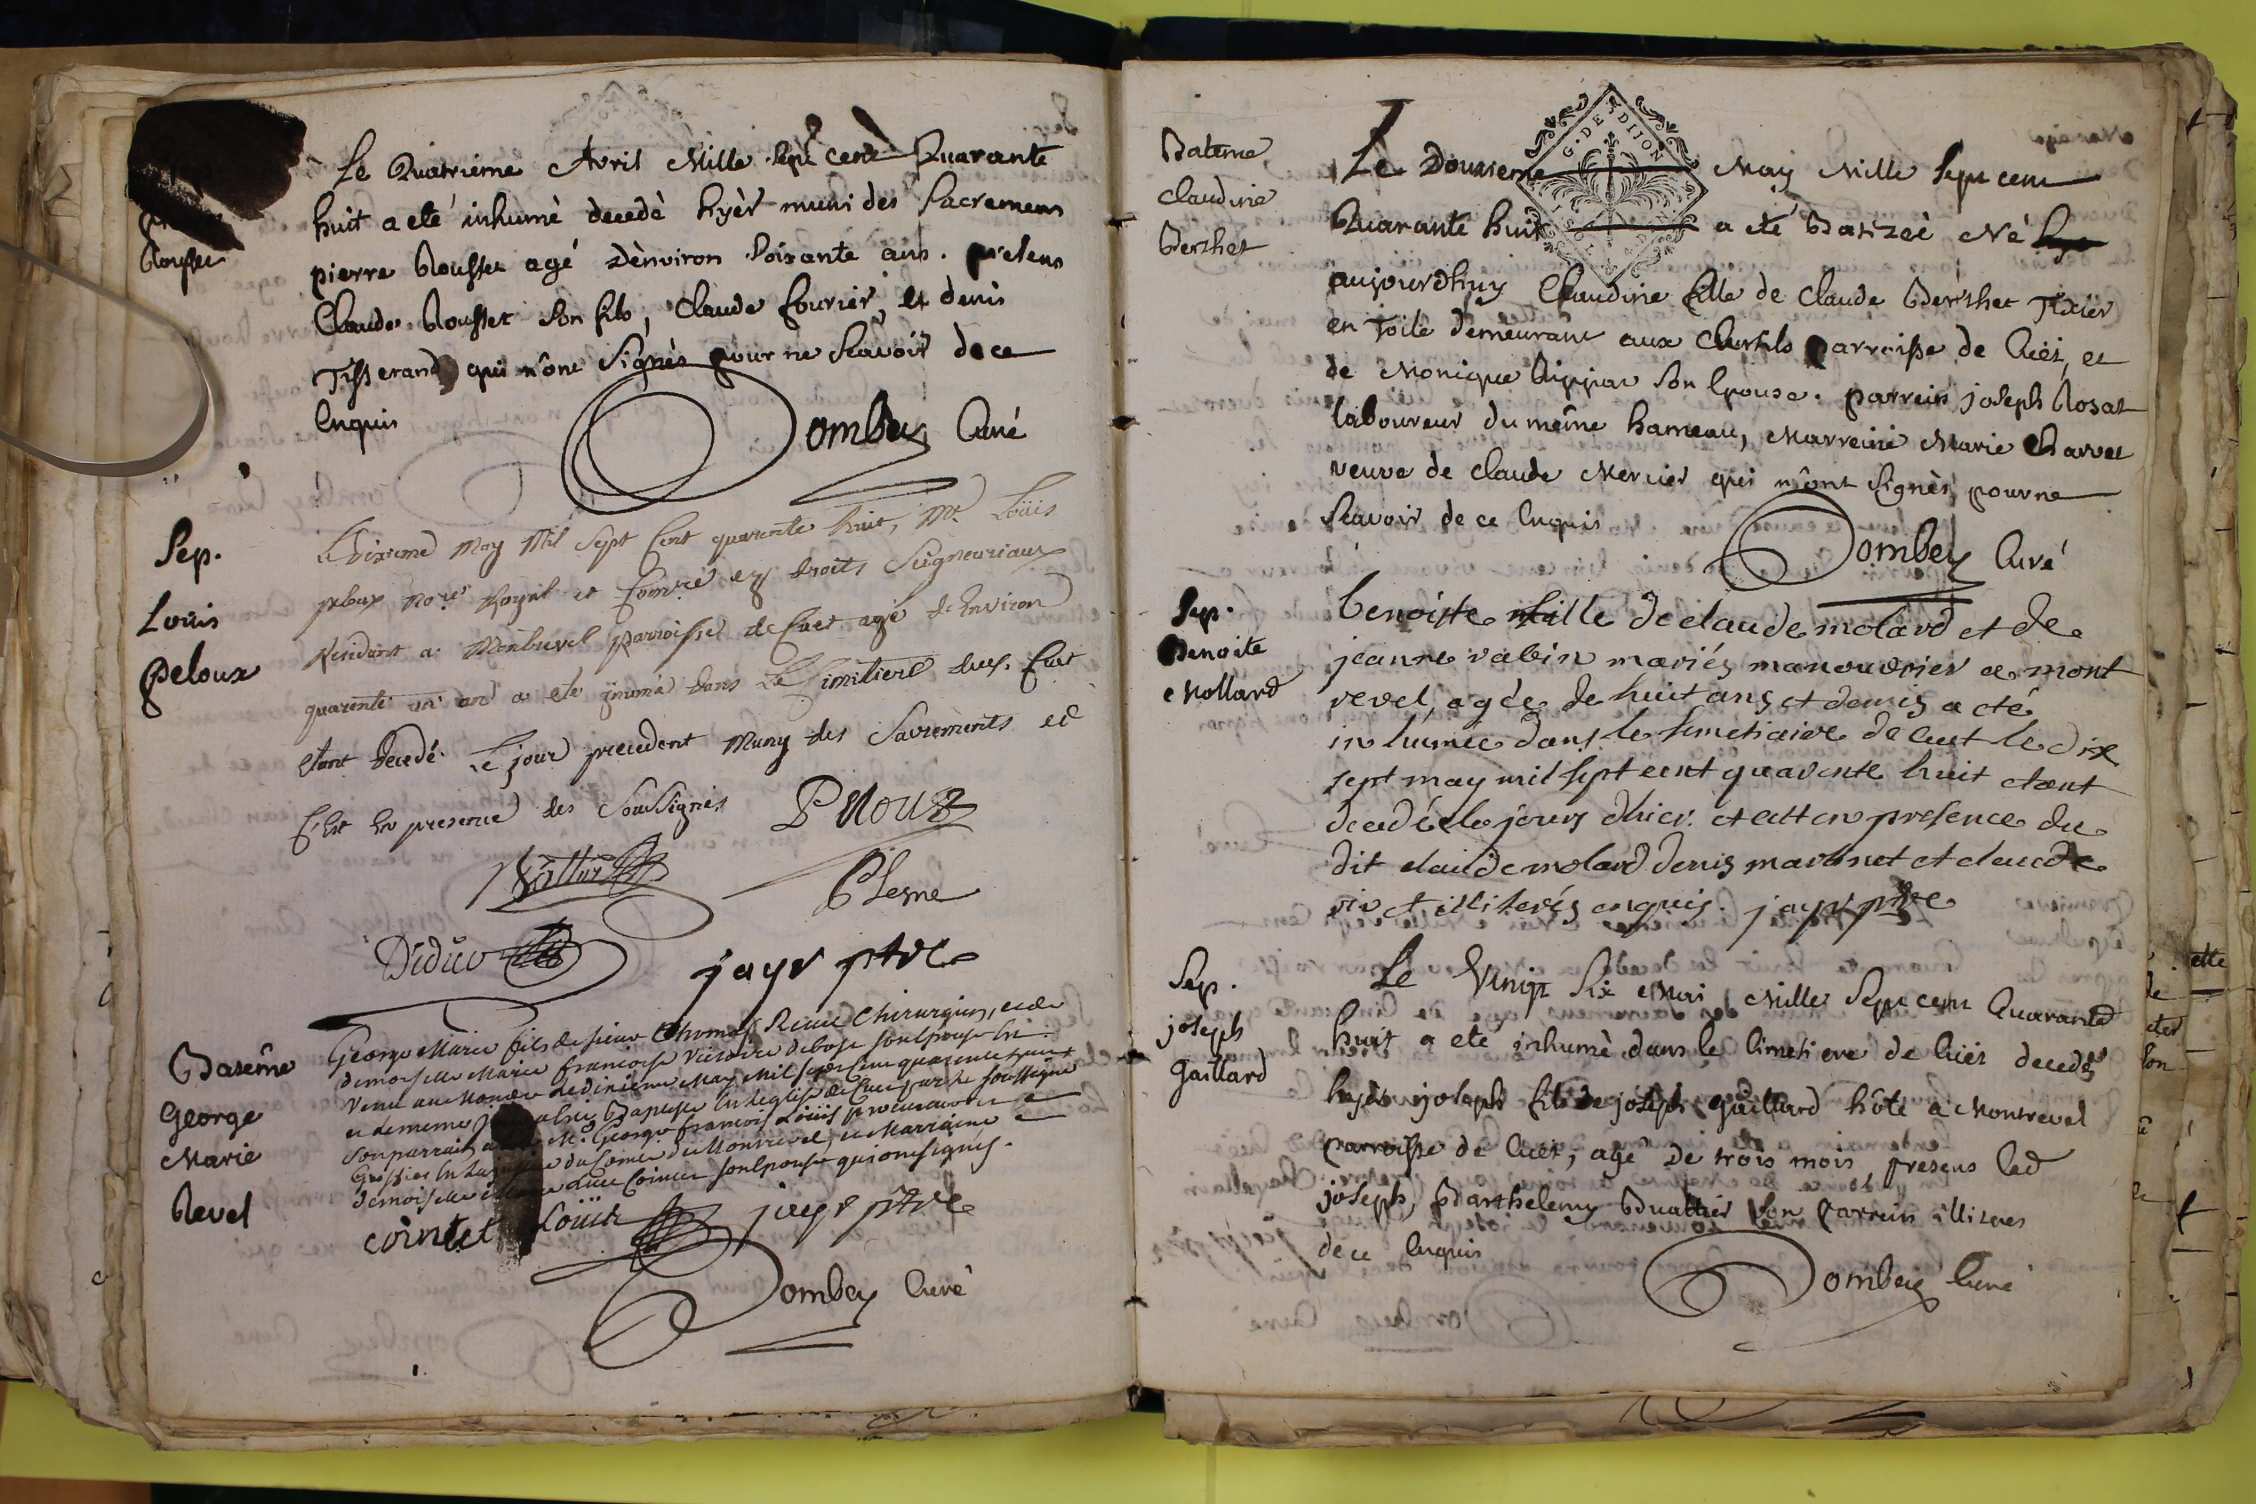 Rousset
Le Quatrieme Avril Mille Sept cent Quarante
huit a eté inhumé decedé hyèr muni des Sacremens
pierre Rousset agé d'environ Soixante ans. presens
Claude Rousset Son fils, Claude Courier, et denis
Tisserand qui n'ônt Signés pour ne Scavoir de ce
Enquis
Dombey Curé
Sep.
Loüis
Peloux
Le dixieme May Mil Sept Cent quarente huit, Mr Loüis
peloux Nore Royal et Comre es droits Seigneuriaux
Residant a Montrevel parroisse de Cuet agé de Environ
quarente un ans a eté ynumé dans Le Cimitiere dud. Cuet
etant decedé Le jour precedent Muny des Sacrements et
C'Est En presence des Sousignés
Plesne
Diduc
jayr ptre
Batême
George
Marie
Revel
George Marie fils de sieur Thomas Revel Chirurgien, et de
demoiselle Marie francoise victoire debost son Epouse est
venu au Monde le dixieme May Mil sept cent quarente huit
et dememe jour a etre Baptisé en l'eglise de Cuet par le soussigné
son parrain Mr George francois Loüis procureur et
Greffier en la du Comté de Montrevel, et Marraine
demoiselle Cointet son Epouse qui ont signés.
cointet Loüis jayr ptre
Dombey Curé
Batême
Claudine
Berthet
G. DE DIJON
Le Douzieme May Mille Sept cent
Quarante huit a eté Batizeè Né
aujourdhuy Claudine fille de Claude Berthet Tixier
en Toile demeurant aux Curtils parroisse de Cuet, et
de Monique Son Epouse. parrein joseph Rosat
laboureur du même hameau, Marreine Marie Charvet
veuve de Claude Mercier qui n'ônt Signès pour ne
Scavoir de ce Enquis
Dombey Curé
Sep.
Benoite
Mollard
benoiste fille de claude molard et de
jeanne rabin mariés manouvrier a mont
revel, agée de huit ans et demis a eté
inhumée dans le simetiaire de cuet le dix
sept may mil sept cent quarente huit etant
decedée le jours d'hier. et cett en presence du
dit claude molard denis martinet et claude
vix et illiterés enquis. jayr ptre
Sep.
joseph
Gaillard
Le Vingt Six Mai Mille Sept cent Quarante
huit a eté inhumè dans le Cimetiere de Cuet decedé
hyèr joseph fils de joseph gaillard hôte a Montrevel
parroisse de Cuet, agé De trois mois, presens led
joseph, Barthelemy Buattier son parrein illiteres
de ce Enquis
Dombey Curé